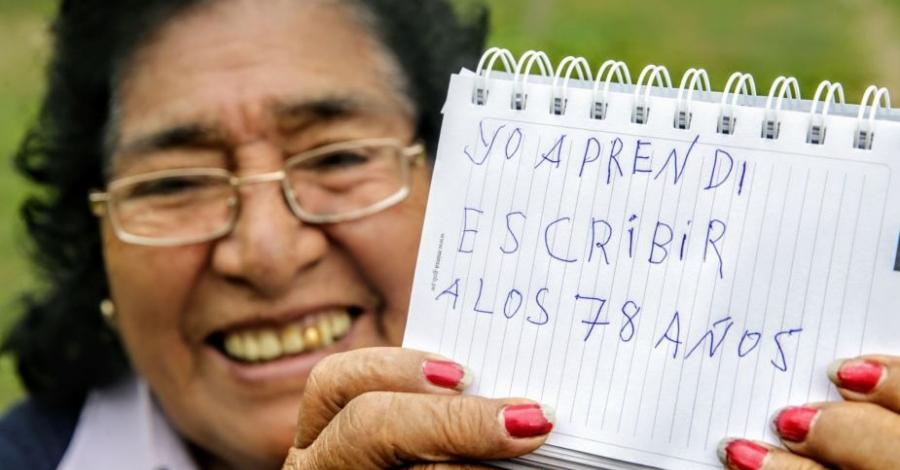 YO APRENDI
ESCRIBIR
A LOS 78 AÑOS